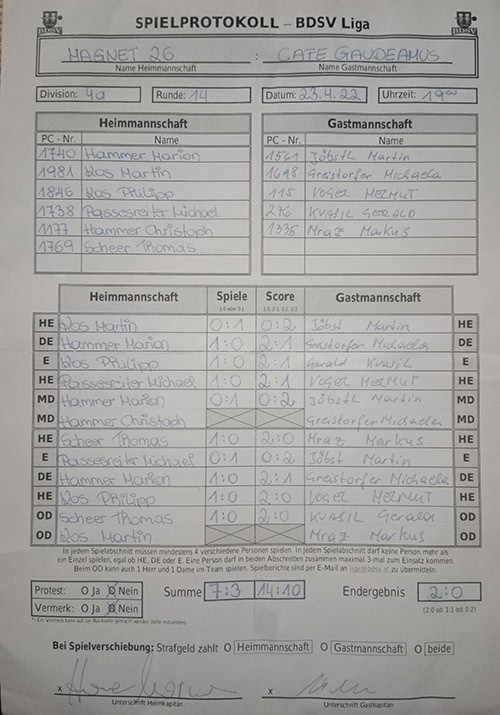 SPIELPROTOKOLL – BDSV Liga
MAGNET 26 : CAFE GAUDEAMUS
Name Heimmannschaft Name Gastmannschaft
Division: 4a Runde: 14 Datum: 23.4.22 Uhrzeit: 19⁰⁰
Heimmannschaft Gastmannschaft
PC - Nr. Name PC - Nr. Name
1740 Hammer Marion 1561 Jöbstl Martin
1981 Wos Martin 1698 Greistorfer Michaela
1846 Wos Philipp 115 VOGEL HELMUT
1738 Passesreiter Michael 276 KVASIL GERALD
1177 Hammer Christoph 1335 Mraz Markus
1769 Scheer Thomas
Heimmannschaft Spiele Score Gastmannschaft
HE Wos Martin 0:1 0:2 Jöbst Martin HE
DE Hammer Marion 1:0 2:1 Greistorfer Michaela DE
E Wos Philipp 1:0 2:1 Gerald Kvasil E
HE Passesreiter Michael 1:0 2:1 VOGEL HELMUT HE
MD Hammer Marion 0:1 0:2 Jöbstl Martin MD
MD Hammer Christoph Greistorfer Michaela MD
HE Scheer Thomas 1:0 2:0 Mraz Markus HE
E Passesreiter Michael 0:1 0:2 Jöbst Martin E
DE Hammer Marion 1:0 2:1 Greistorfer Michaela DE
HE Wos Philipp 1:0 2:0 VOGEL HELMUT HE
OD Scheer Thomas 1:0 2:0 KVASIL Gerald OD
OD Wos Martin Mraz Markus OD
In jedem Spielabschnitt müssen mindestens 4 verschiedene Personen spielen. In jedem Spielabschnitt darf keine Person mehr als
ein Einzel spielen, egal ob HE, DE oder E. Eine Person darf in beiden Abschnitten zusammen maximal 3-mal zum Einsatz kommen.
Beim OD kann auch 1 Herr und 1 Dame im Team spielen. Spielberichte sind per E-Mail an liga@bdsv.at zu übermitteln.
Protest: O Ja O Nein Summe 7:3 14:10 Endergebnis 2:0
Vermerk: O Ja O Nein (2:0 od. 1:1 od. 0:2)
Bei Spielverschiebung: Strafgeld zahlt O Heimmannschaft O Gastmannschaft O beide
x x
Unterschrift Heimkapitän Unterschrift Gastkapitän